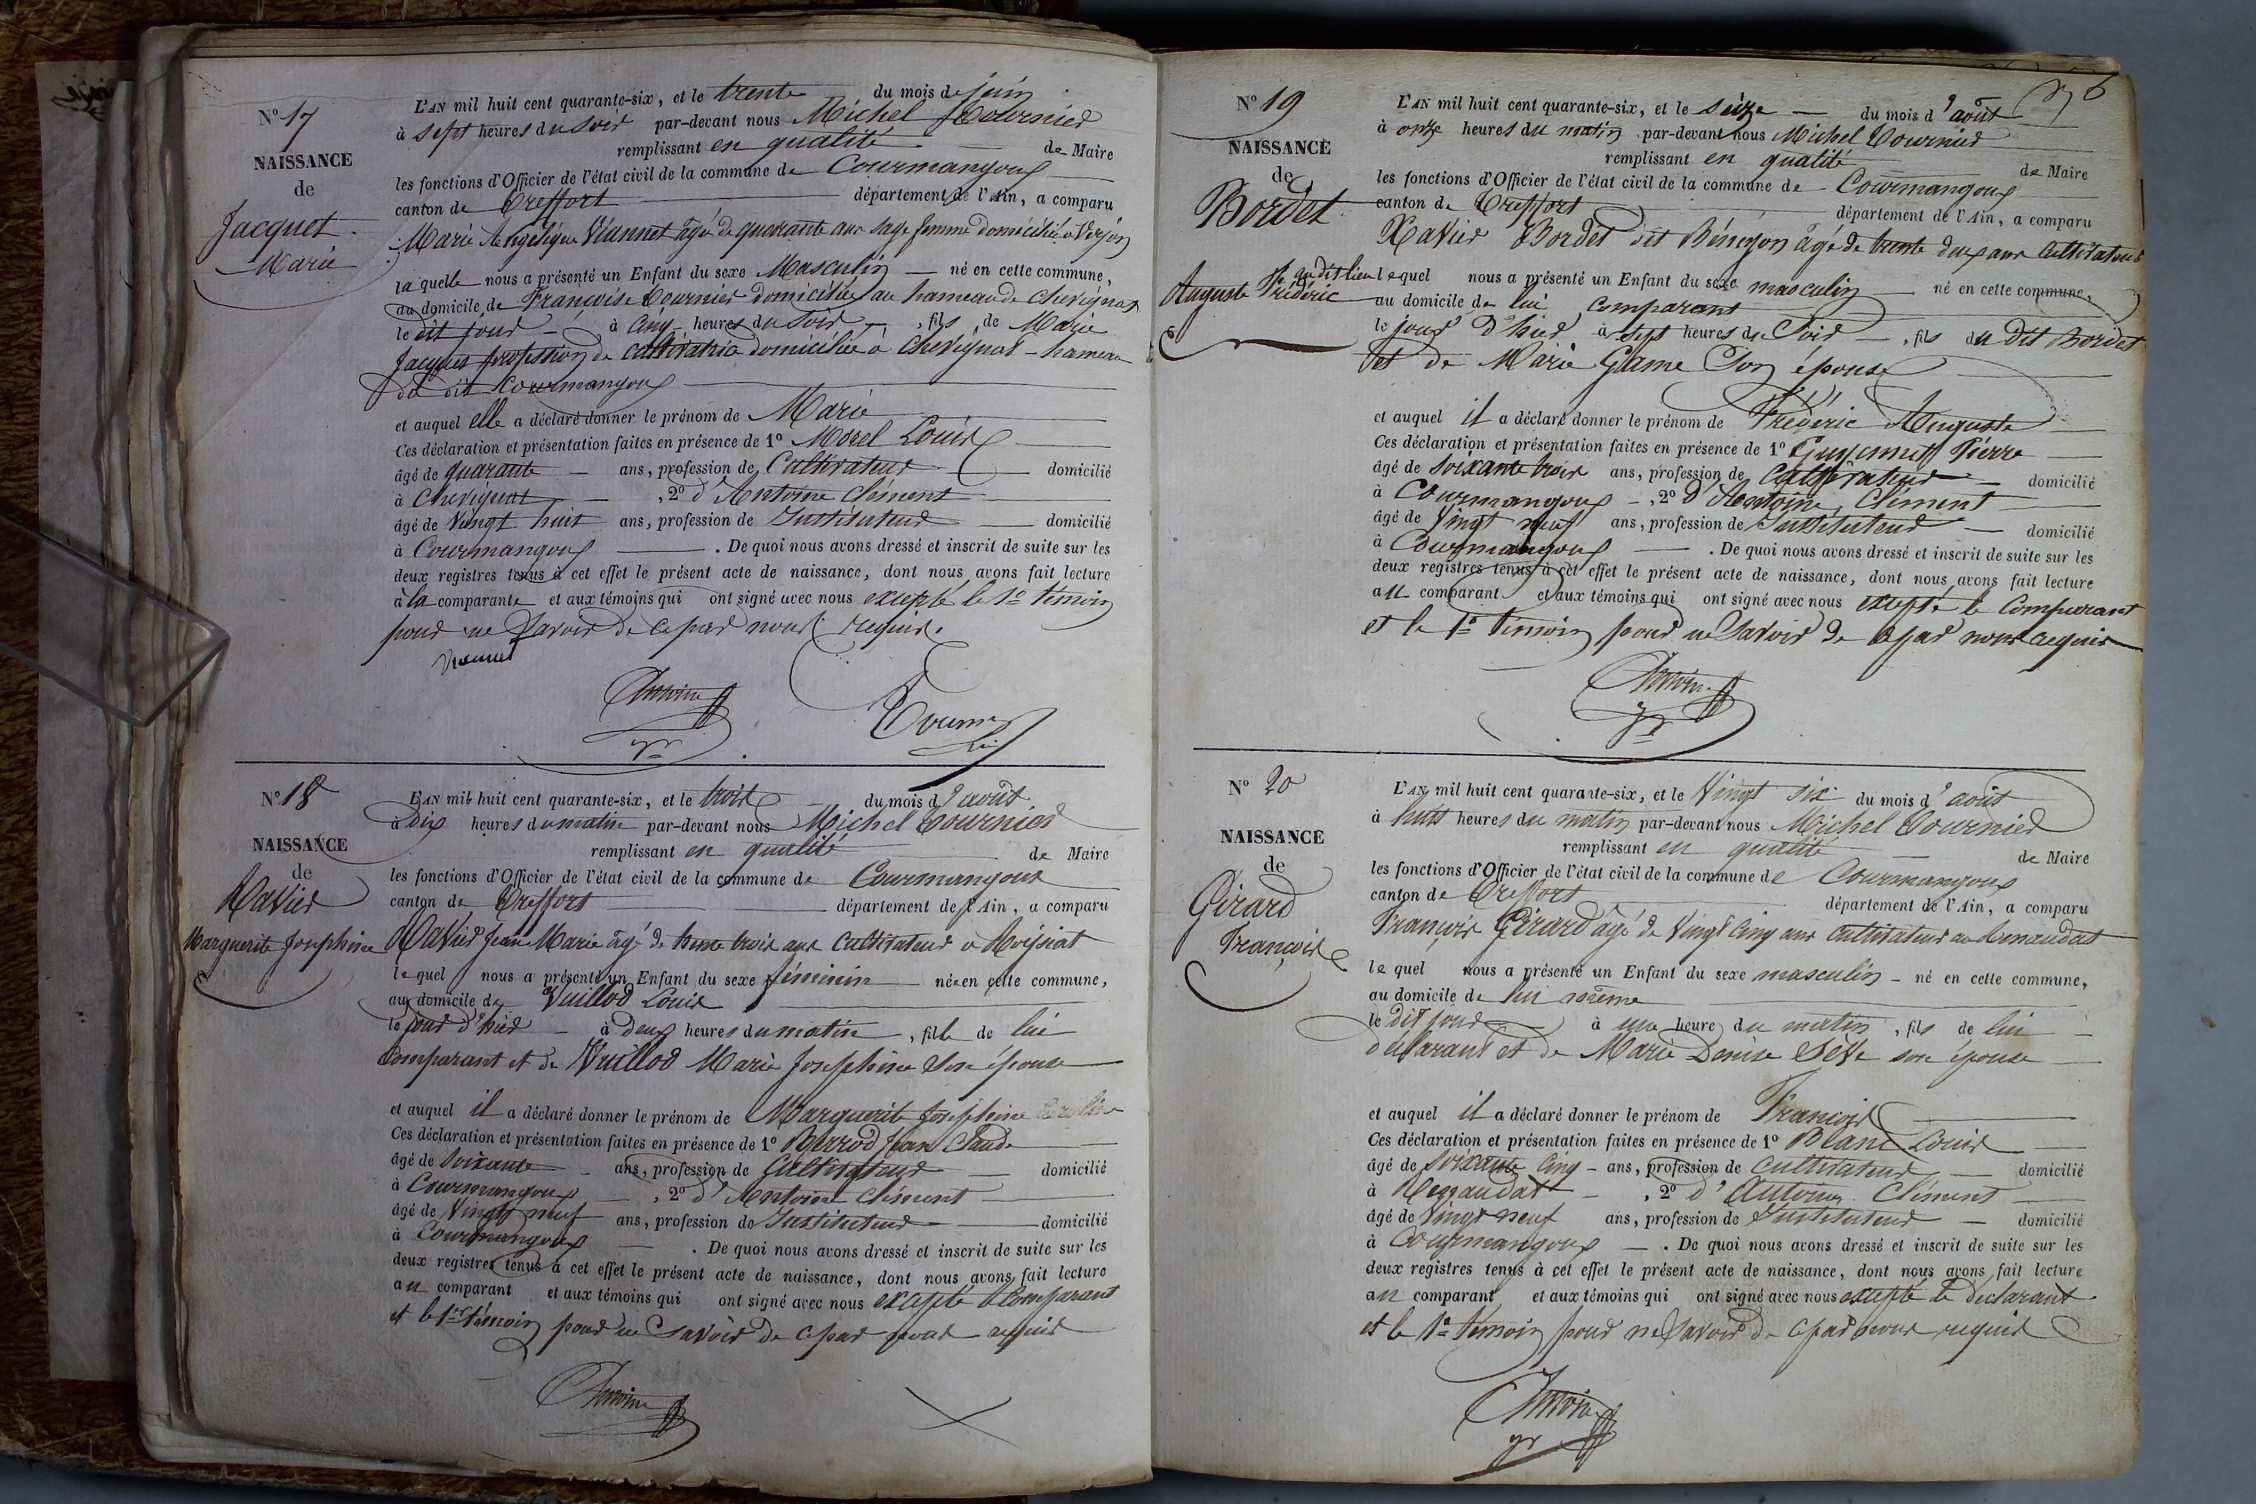 N° 17
NAISSANCE
de
Jacquet
Marie
L'AN mil huit cent quarante-six, et le trente du mois de juin
à sept heures du soir par-devant nous Michel Tournier
remplissant en qualité de Maire
les fonctions d'Officier de l'état civil de la commune de Courmangoux
canton de Treffort département de l'Ain, a comparu
Marie Angélique Viannet âgée de quarante ans sage femme domiciliée à Verjon
laquelle nous a présenté un Enfant du sexe Masculin né en cette commune,
au domicile de Françoise Tournier domiciliée au hameau de Chevignat
le dit jour à cinq heures du soir, fils de Marie
Jacquet profession de cultivatrice domiciliée à Chevignat hameau
du dit Courmangoux
et auquel elle a déclaré donner le prénom de Marie
Ces déclaration et présentation faites en présence de 1° Morel Louis
âgé de quarante ans, profession de Cultivateur domicilié
à Chevignat, 2° d'Antoine Clément
âgé de vingt huit ans, profession de Instituteur domicilié
à Courmangoux. De quoi nous avons dressé et inscrit de suite sur les
deux registres tenus à cet effet le présent acte de naissance, dont nous avons fait lecture
à la comparante et aux témoins qui ont signé avec nous excepté le 1er témoin
pour ne savoir de ce par nous requis.
Antoine
Tournier
N° 18
NAISSANCE
de
Ravier
Marguerite Josephine
L'AN mil huit cent quarante-six, et le trois du mois d'août
à dix heures du matin par-devant nous Michel Tournier
remplissant en qualité de Maire
les fonctions d'Officier de l'état civil de la commune de Courmangoux
canton de Treffort département de l'Ain, a comparu
Ravier Jean Marie âgé de trente trois ans cultivateur à Roissiat
lequel nous a présenté un Enfant du sexe féminin née en cette commune,
au domicile de Vuillod Louis
le jour d'hier à deux heures du matin, fille de lui
comparant et de Vuillod Marie Josephine son épouse
et auquel il a déclaré donner le prénom de Marguerite Josephine
Ces déclaration et présentation faites en présence de 1° Perrod Jean Claude
âgé de soixante ans, profession de Cultivateur domicilié
à Courmangoux, 2° d'Antoine Clément
âgé de vingt neuf ans, profession de Instituteur domicilié
à Courmangoux. De quoi nous avons dressé et inscrit de suite sur les
deux registres tenus à cet effet le présent acte de naissance, dont nous avons fait lecture
au comparant et aux témoins qui ont signé avec nous excepté le Comparant
et le 1er témoin pour ne savoir de ce par nous requis
Antoine
6
N° 19
NAISSANCE
de
Bordet
Auguste Frédéric
L'AN mil huit cent quarante-six, et le seize du mois d'août
à onze heures du matin par-devant nous Michel Tournier
remplissant en qualité de Maire
les fonctions d'Officier de l'état civil de la commune de Courmangoux
canton de Treffort département de l'Ain, a comparu
Xavier Bordet dit Bényon âgé de trente deux ans Cultivateur
au dit lieu lequel nous a présenté un Enfant du sexe masculin né en cette commune,
au domicile de lui comparant
le jour d'hier à sept heures du soir, fils du dit Bordet
et de Marie Game son épouse
et auquel il a déclaré donner le prénom de Frédéric Auguste
Ces déclaration et présentation faites en présence de 1° Guyennet Pierre
âgé de soixante trois ans, profession de Cultivateur domicilié
à Courmangoux, 2° d'Antoine Clément
âgé de vingt neuf ans, profession de Instituteur domicilié
à Courmangoux. De quoi nous avons dressé et inscrit de suite sur les
deux registres tenus à cet effet le présent acte de naissance, dont nous avons fait lecture
au comparant et aux témoins qui ont signé avec nous excepté le Comparant
et le 1er témoin pour ne savoir de ce par nous requis
Antoine
N° 20
NAISSANCE
de
Girard
François
L'AN mil huit cent quarante-six, et le vingt six du mois d'août
à huit heures du matin par-devant nous Michel Tournier
remplissant en qualité de Maire
les fonctions d'Officier de l'état civil de la commune de Courmangoux
canton de Treffort département de l'Ain, a comparu
François Girard âgé de vingt cinq ans cultivateur au Renaudat
lequel nous a présenté un Enfant du sexe masculin né en cette commune,
au domicile de lui même
le dit jour à une heure du matin, fils de lui
déclarant et de Marie Denise Sève son épouse
et auquel il a déclaré donner le prénom de François
Ces déclaration et présentation faites en présence de 1° Blanc Louis
âgé de soixante cinq ans, profession de cultivateur domicilié
à Renaudat, 2° d'Antoine Clément
âgé de vingt neuf ans, profession de Instituteur domicilié
à Courmangoux. De quoi nous avons dressé et inscrit de suite sur les
deux registres tenus à cet effet le présent acte de naissance, dont nous avons fait lecture
au comparant et aux témoins qui ont signé avec nous excepté le déclarant
et le 1er témoin pour ne savoir de ce par nous requis
Antoine